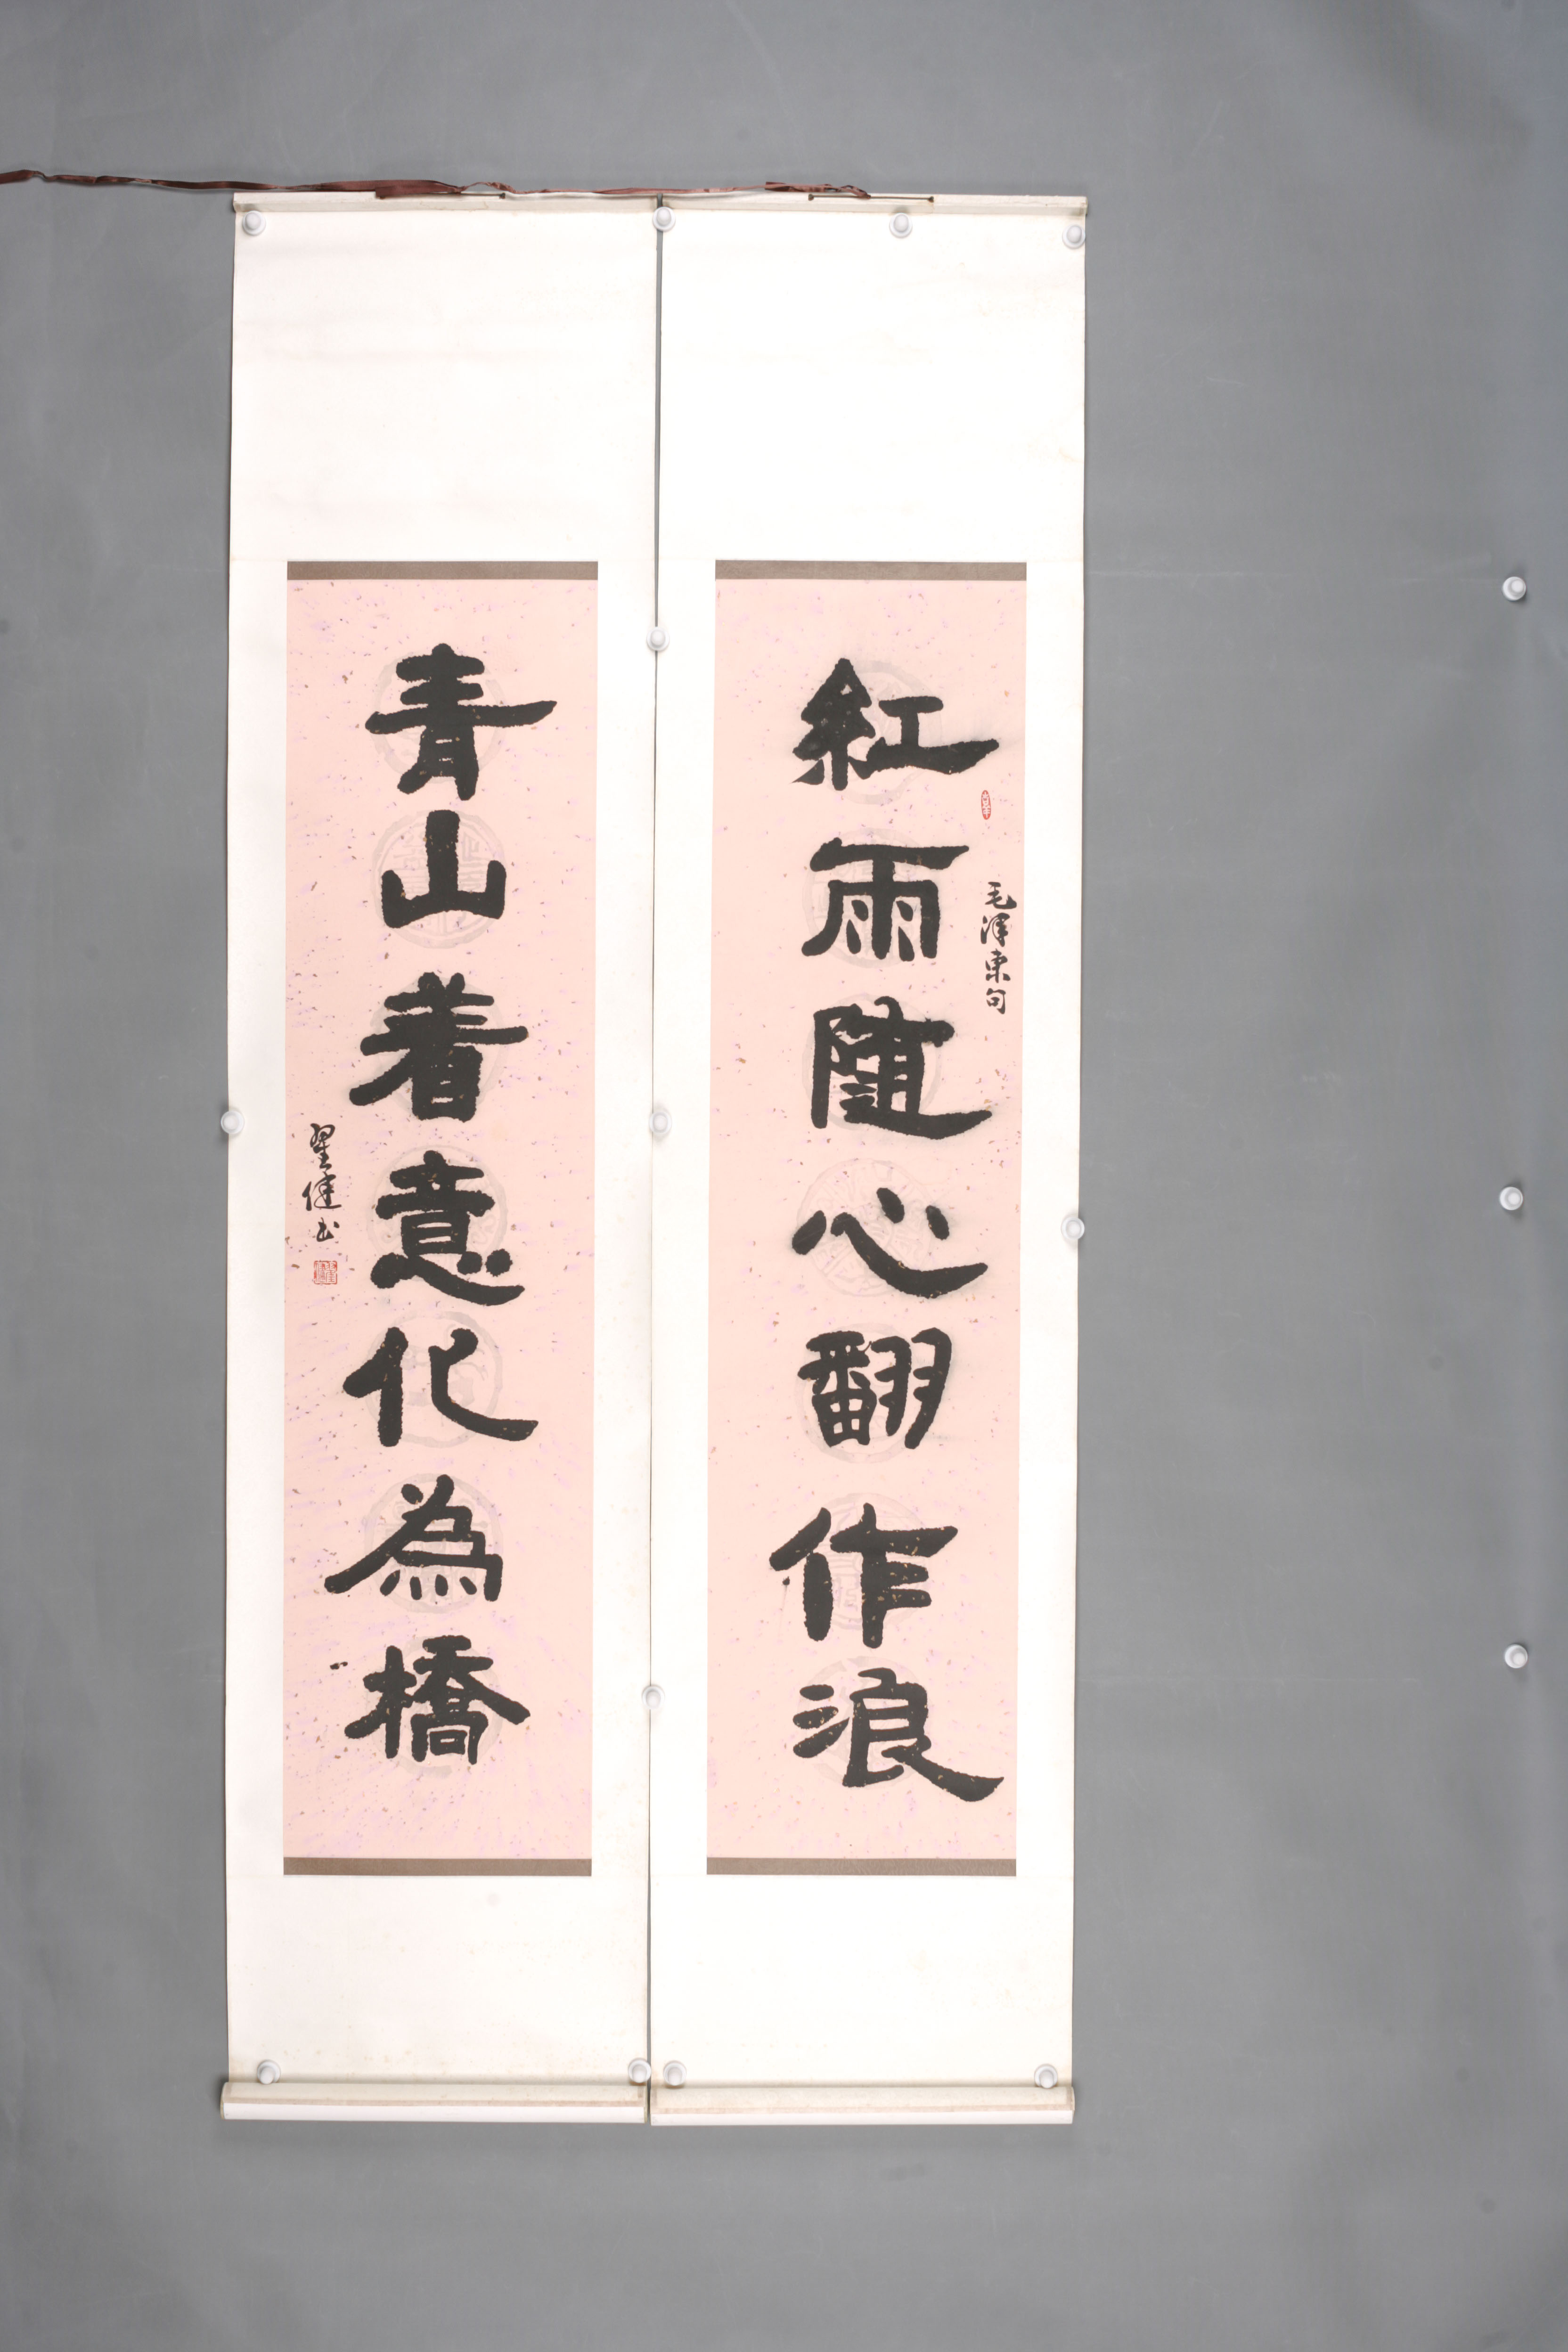 紅雨隨心翻作浪
毛澤東句
青山着意化為橋
翟健书